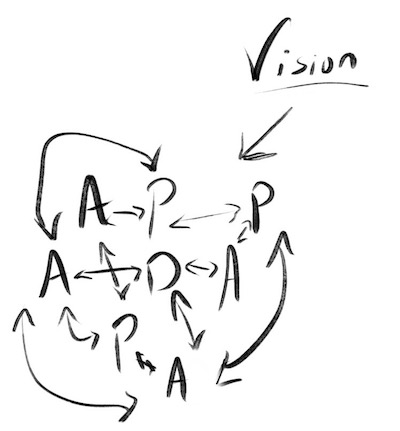 Vision
A P P
A D A
P
A